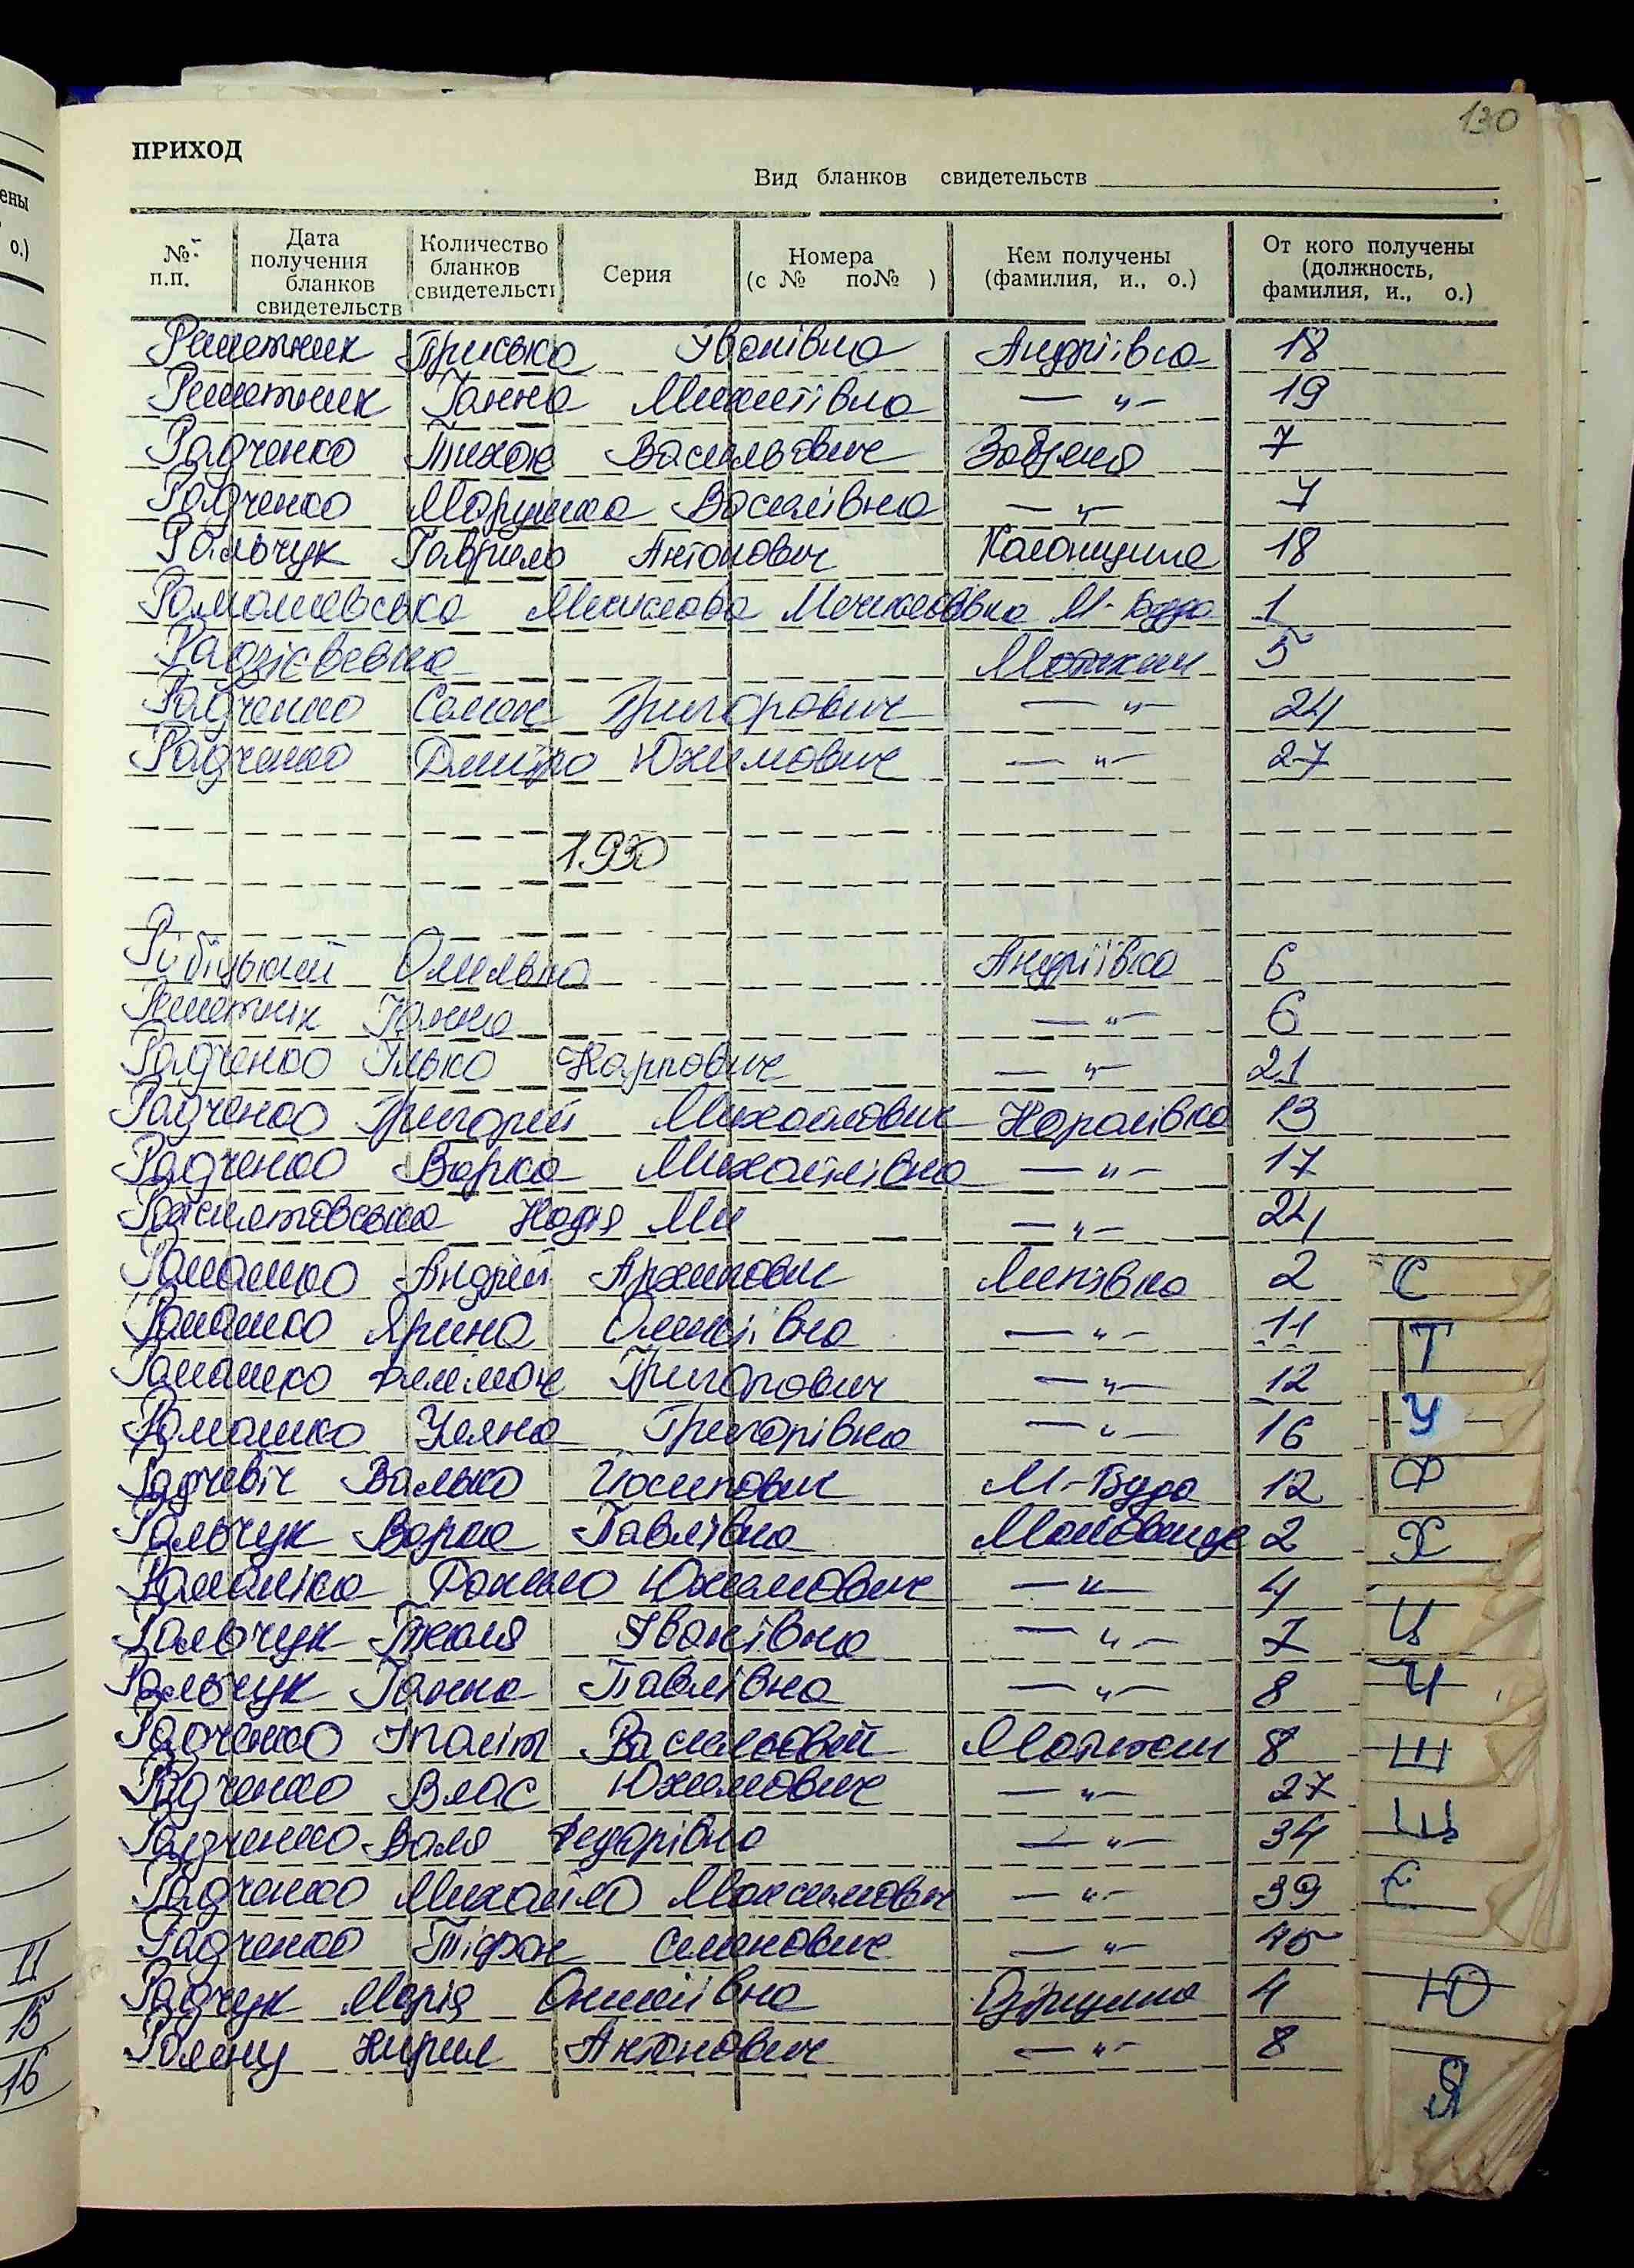 130
ПРИХОД
Вид бланков свидетельств
№ п.п.
Дата получения бланков свидетельств
Количество бланков свидетельств
Серия
Номера (с № по № )
Кем получены (фамилия, и., о.)
От кого получены (должность, фамилия, и., о.)
ены
о.)
Решетник Приська Іванівна Андріївка 18
Решетник Ганна Микитівна — " — 19
Радченко Тихон Васильович 7
Радченко Марушка Василівна — " — 7
Ральчук Гаврило Антонович Колонщина 18
Ромашевська М-Буда 1
Радзієвевна Мотижин 5
Радченко Семен Григорович — " — 24
Радченко Дмитро Юхимович — " — 27
1930
Омелько Андріївка 6
Решетнік Ганна — " — 6
Радченко Ілько Карпович — " — 21
Радченко Григорій Михайлович Королівка 13
Радченко Варка Михайлівна — " — 17
Надія Ми — " — 24
Ромашко Андрій Архипович Липівка 2
Ромашко Ярина Олексіївна — " — 11
Ромашко Филимон Григорович — " — 12
Ромашко Уляна Григорівна — " — 16
Радчевіч Валько Йосипович М-Буда 12
Ральчук Варка Павлівна 2
Юхимович — " — 4
Ральчук Текля Іванівна — " — 7
Ральчук Ганна Павлівна — " — 8
Радченко Іполіт Мотижин 8
Радченко Влас Юхимович — " — 27
Радченко Валя Федорівна — " — 34
Радченко Михайло Максимович — " — 39
Радченко Семенович — " — 45
Радчук Марія 4
Кирил Антонович — " — 8
С
Т
У
Ф
Х
Ц
Ч
Ш
Щ
Є
Ю
Я
11
15
16